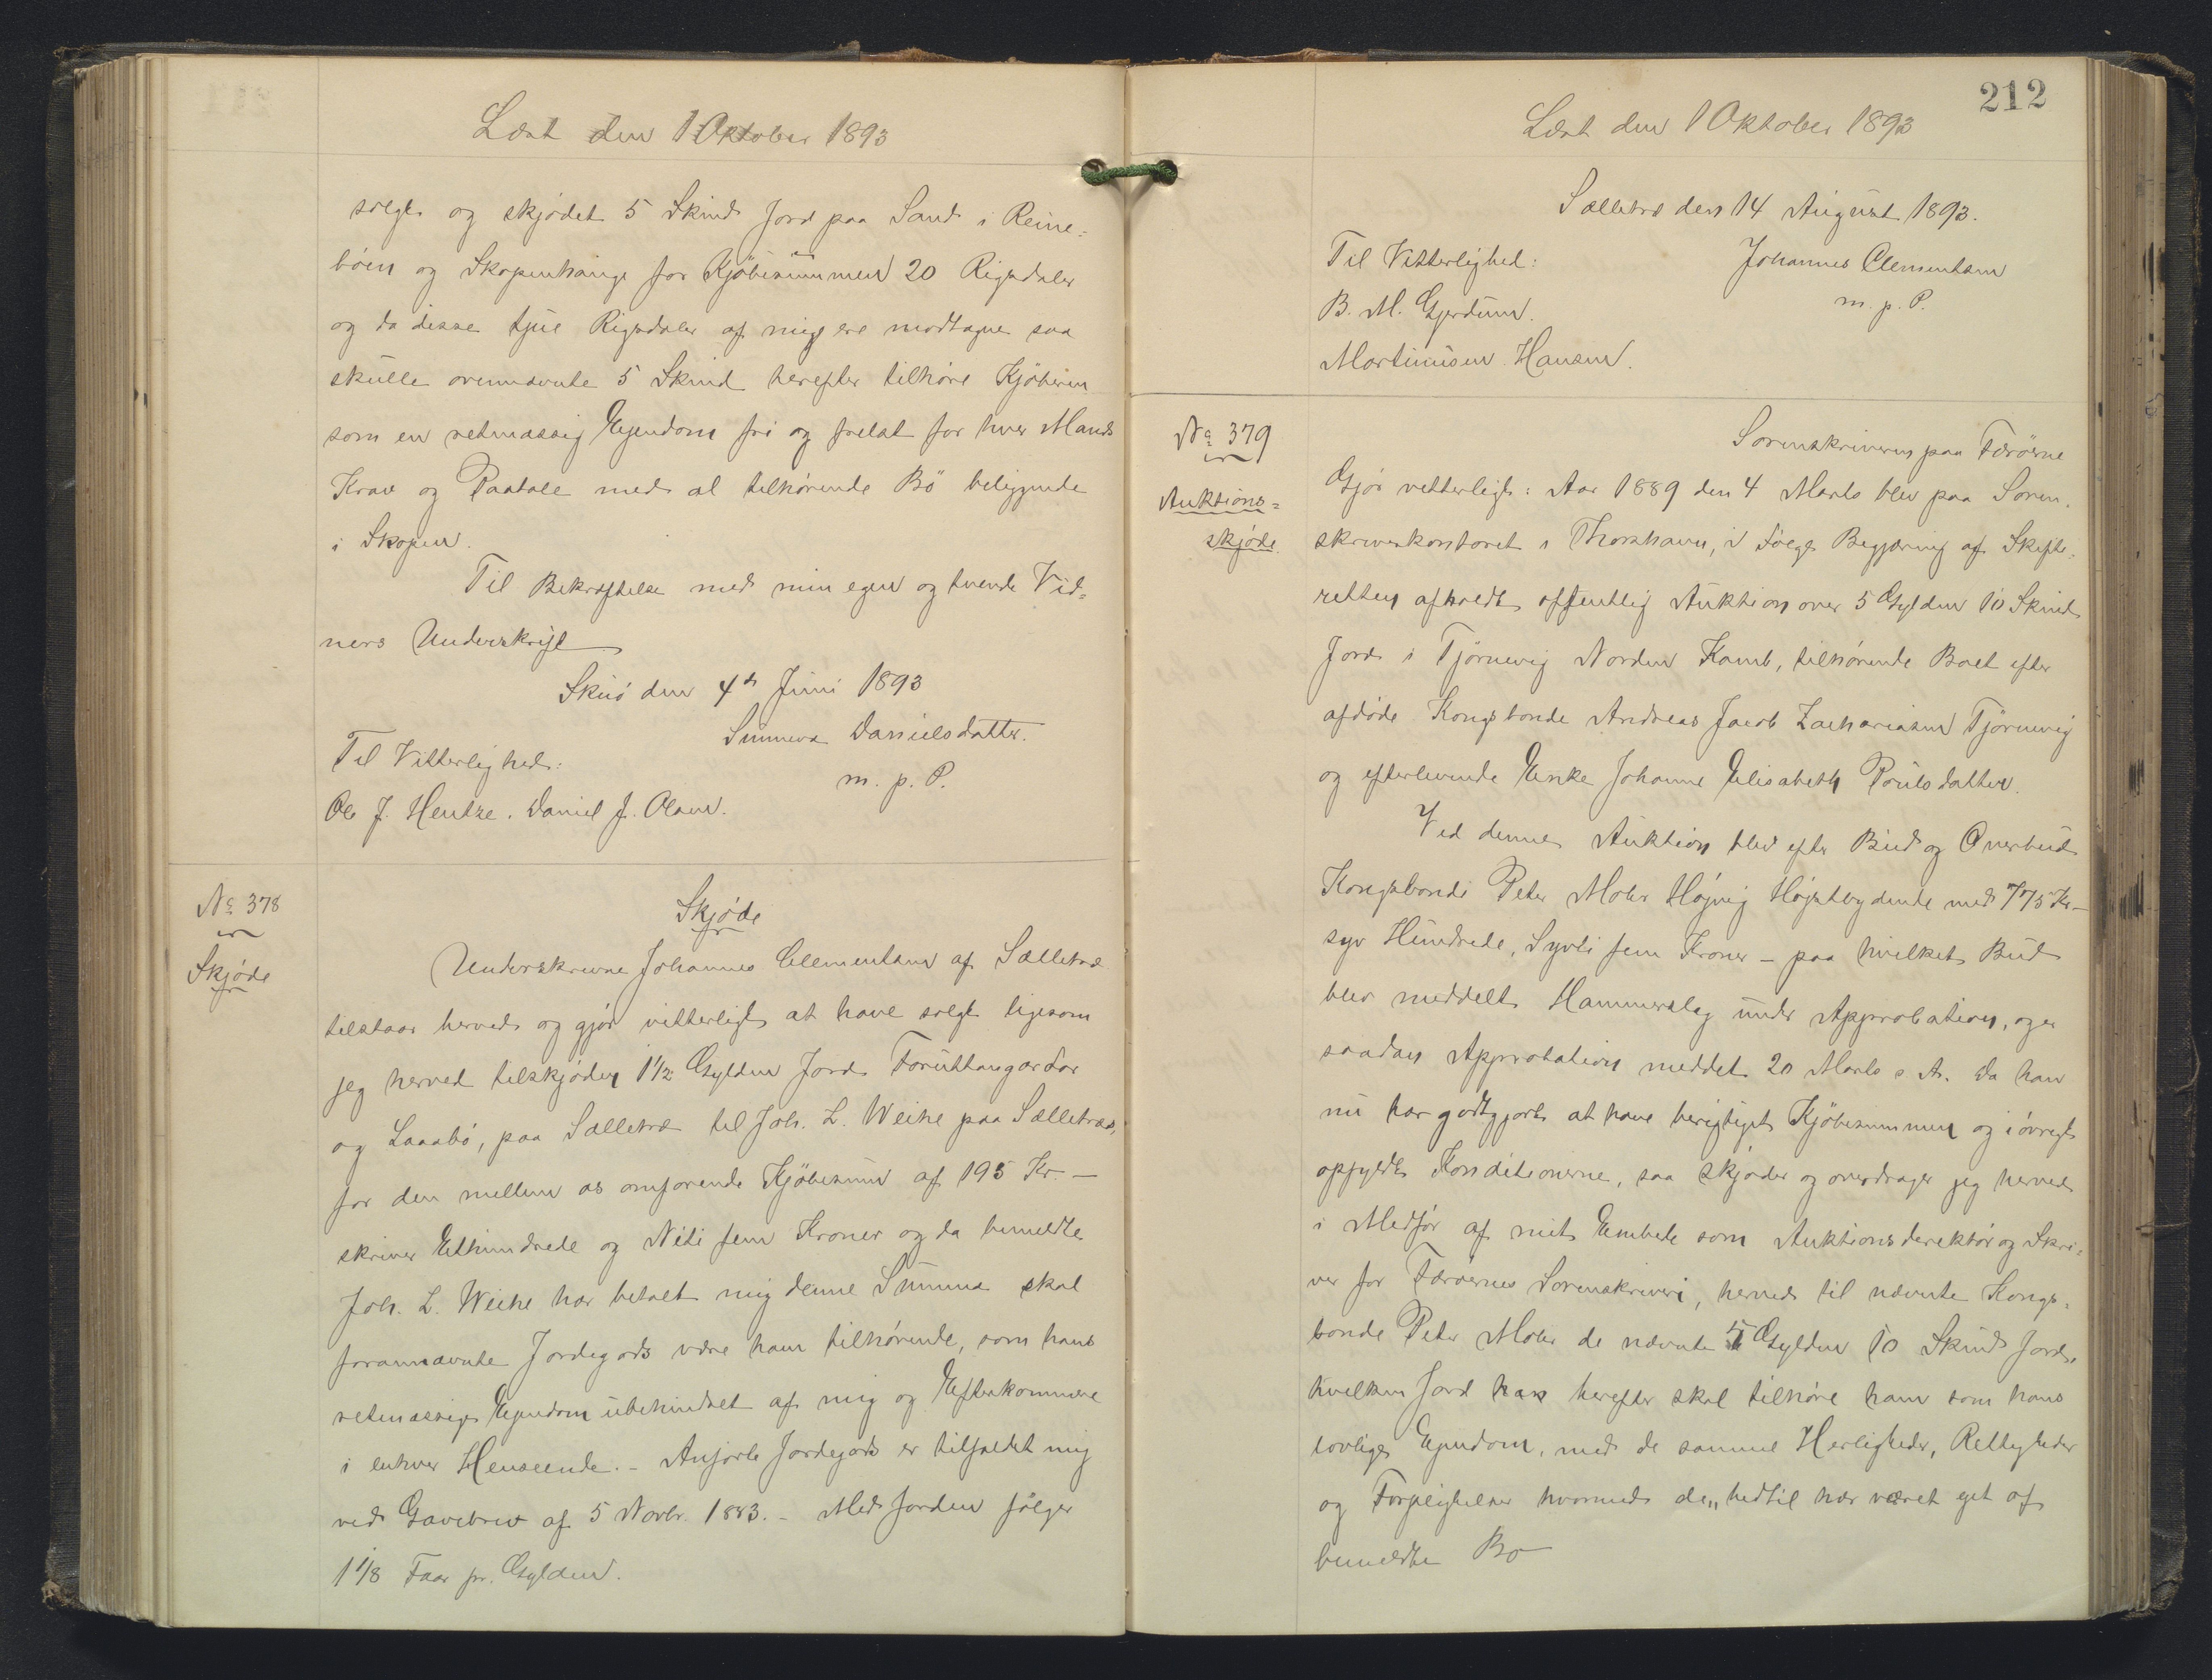 Læst den 1 Oktober 1893
solgt og skjødet 5 Skind Jord paa Sand i Reine-
böen og Skopenhauge for Kjöbesummen 20 Rigsdaler
og da disse tjue Rigsdaler af mig ere modtagne saa
skulle ovennævnte 5 Skind herefter tilhöre Kjöberen
som en retmæssig Ejendom fri og frelst for hver Mands
Krav og Paatale med al tilhørende Bö beliggende
i Skopen.
Til Bekræftelse med min egen og tvende Vid-
ners Underskrift
Skuö den 4de Juni 1893
Sunneva Danielsdatter.
m. p. P.
Til Vitterlighed:
Ole J. Hentze. Daniel J. Olsen.
No 378
Skjøde
Skjøde
Underskrevne Johannes Clementsen af Sælletræ
tilstaar herved og gjør vitterligt at have solgt ligesom
jeg herved tilskjøder 1 1/2 Gylden Jord Foruttangardar
og Laaabø, paa Sælletræ til Joh. L. Weihe paa Sælletræ,
for den mellem os omforende Kjöbesum af 195 Kr. –
skriver Ethundrede og Niti fem Kroner og da bemeldte
Joh. L. Weihe har betalt mig denne Summa skal
forannævnte Jordegods være ham tilhørende, som hans
retmæssige Ejendom ubehindret af mig og Efterkommere
i enhver Henseende. – Anførte Jordegods er tilfaldet mig
ved Gavebrev af 5 Novbr. 1883. – Med Jorden fölger
1 1/8 Faar pr. Gylden.
212
Læst den 1 Oktober 1893
Sælletræ den 14 August 1893.
Johannes Clementsen
m. p. P.
Til Vitterlighed:
B. M. Gjerdum.
Martinus Hansen.
No 379
Auktions-
skjøde
Sorenskriveren paa Færöerne
Gjör vitterligt: Aar 1889 den 4 Marts blev paa Soren-
skriverkontoret i Thorshavn, i Følge Begjæring af Skifte-
retten afholdt offentlig Auktion over 5 Gylden 10 Skind
Jord i Tjörnevig Norden Kamb, tilhørende Boet efter
afdöde Kongsbonde Andreas Jacob Zachariasen Tjörnevig
og efterlevende Enke Johanne Elisabeth Poulsdatter.
Ved denne Auktion blev efter Bud og Overbud
Kongsbonde Peter Mohr Højvig Højstbydende med 775 Kr –
syv Hundrede, Syvti fem Kroner – paa hvilket Bud
blev meddelt Hammerslag under Approbation, og er
saadan Approbation meddelt 20 Marts s. A. Da han
nu har godtgjort at have berigtiget Kjöbesummen og iövrigt
opfyldt Konditionerne, saa skjøder og overdrager jeg herved
i Medför af mit Embede som Auktionsdirektör og Skri-
ver for Færöernes Sorenskriveri, herved til nævnte Kongs-
bonde Peter Mohr de nævnte 5 Gylden 10 Skind Jord,
hvilken Jord han herefter skal tilhöre ham som hans
lovlige Ejendom, med de samme Herligheder, Rettigheder
og Forpligtelser hvormed de„ hidtil har været ejet af
bemeldte Bo